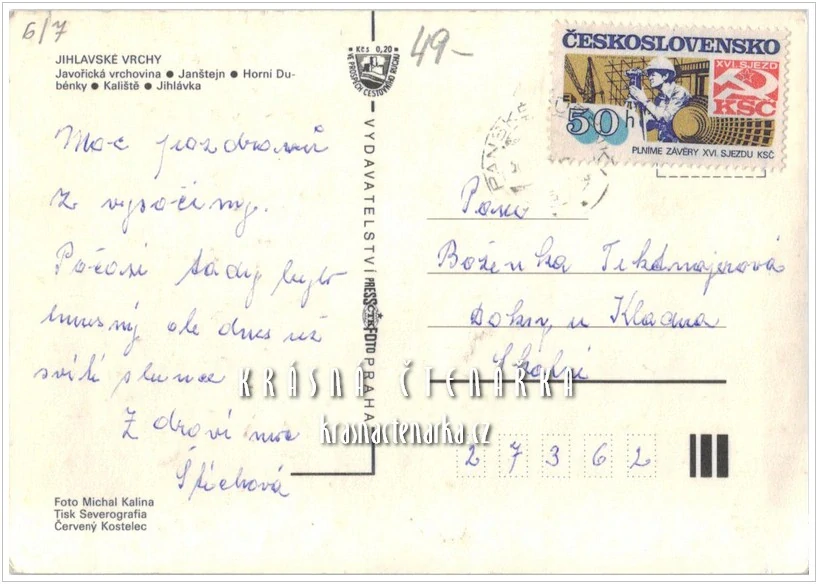 6/7
49-
JIHLAVSKÉ VRCHY
Javořická vrchovina ● Janštejn ● Horní Du-
bénky ● Kaliště ● Jihlávka
Kčs 0,20
VE PROSPĚCH CESTOVNÍHO RUCHU
ČESKOSLOVENSKO
XVI. SJEZD
KSČ
50 h
PLNÍME ZÁVĚRY XVI. SJEZDU KSČ
Moc pozdravů
z vysočiny.
Počasí tady bylo
hnusný ale dnes už
svítí slunce
Zdraví moc
Štichová
VYDAVATELSTVÍ PRESSFOTO PRAHA
Paní
Boženka
Doksy u Kladna
Školní
27362
KRÁSNÁ ČTENÁRKA
krasnactenarka.cz
Foto Michal Kalina
Tisk Severografia
Červený Kostelec